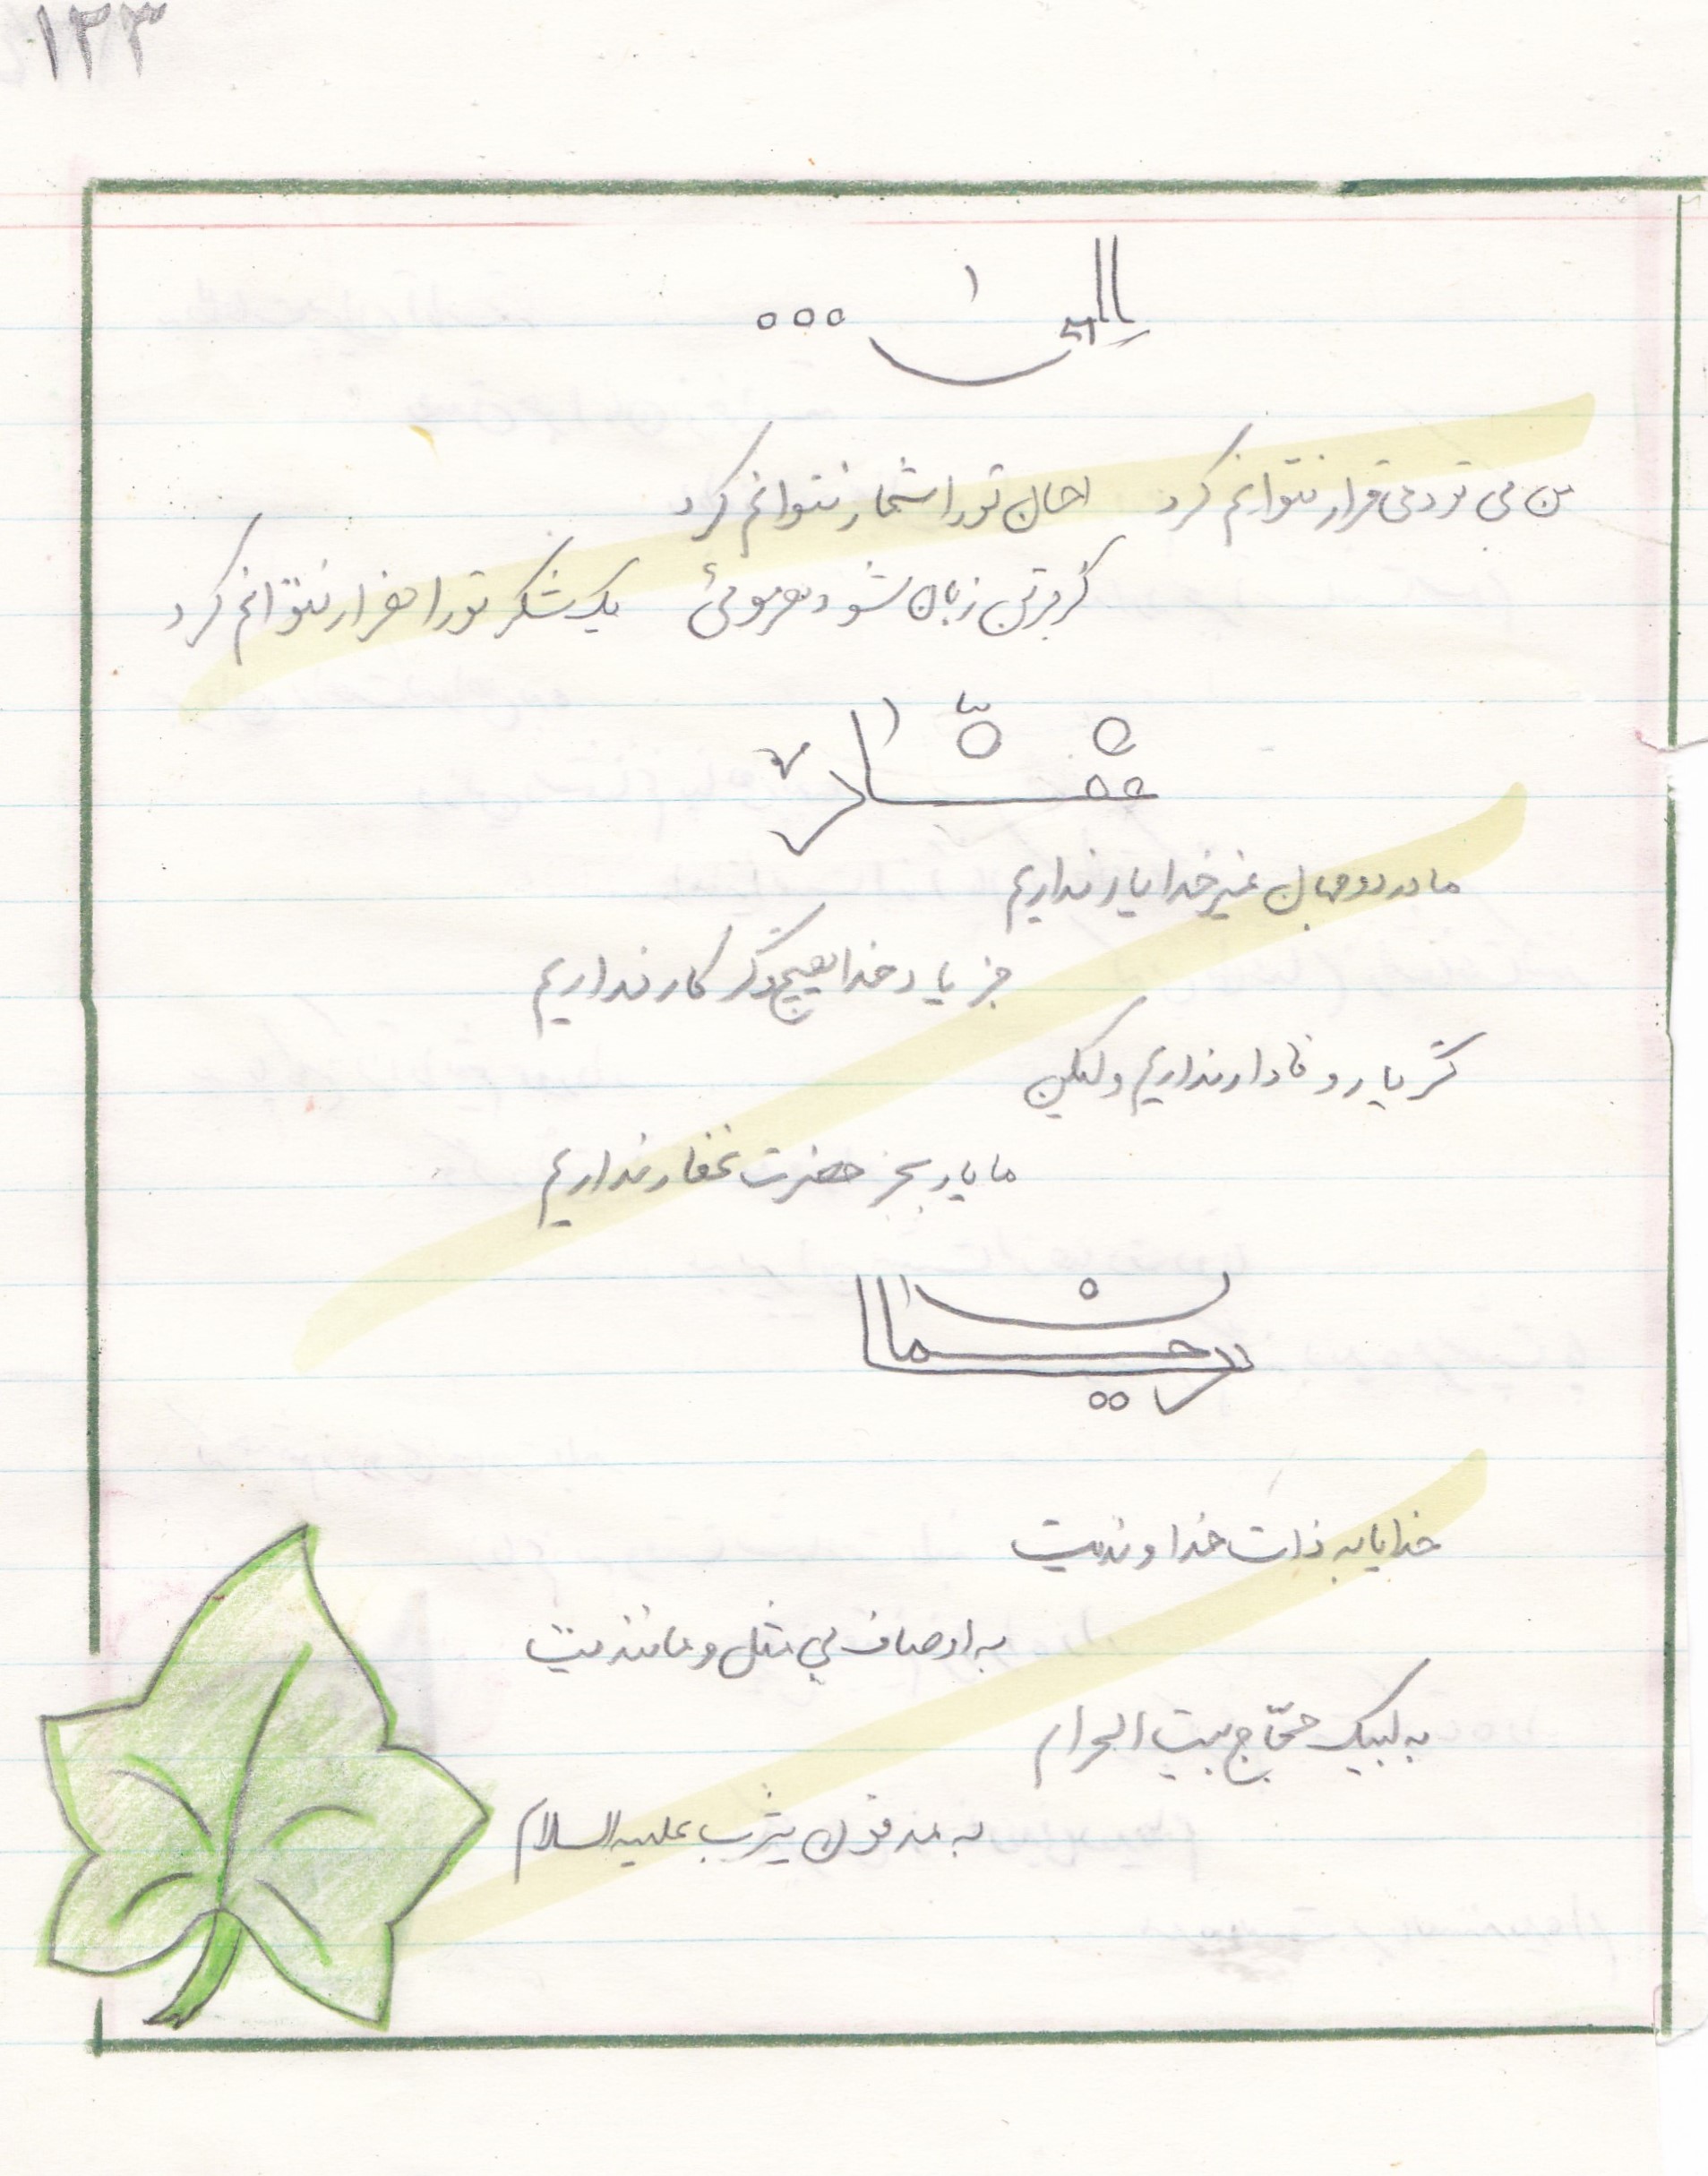 ۱۳۳
الهی ...
من بی تو دمی قرار نتوانم کرد   احسان تو را شمار نتوانم کرد
گر بر تن زبان شود هر موئی   یک شکر تو را هزار نتوانم کرد
ما در دو جهان غیر خدا یار نداریم
جز یاد خدا هیچ دگر کار نداریم
گر یار وفادار نداریم ولیکن
ما یار بجز حضرت غفار نداریم
خدایا به ذات خداوندیت
به اوصاف بی مثل و مانندیت
به لبیک حجّاج بیت الحرام
به مدفون یثرب علیه السلام